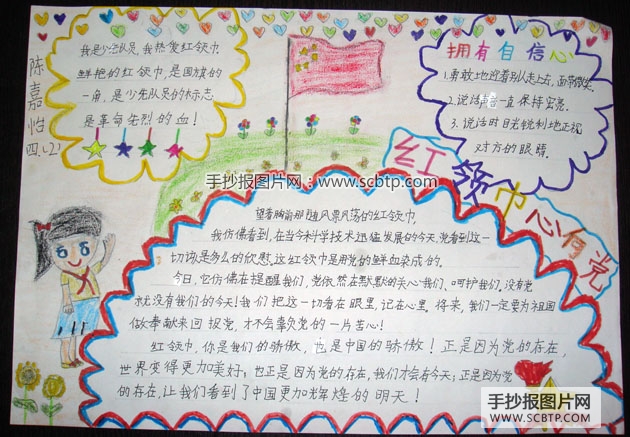 陈嘉怡
四.(2)
我是少先队员,我热爱红领巾
鲜艳的红领巾,是国旗的
一角,是少先队员的标志
是革命先烈的血!
拥有自信心
1.勇敢地迎着别人走上去,面带微笑。
2.说话时一直保持实意。
3.说话时目光锐利地正视
对方的眼睛。
手抄报图片网:www.scbtp.com
红领巾心向党
望着胸前那随风飘荡的红领巾,
我仿佛看到,在当今科学技术迅猛发展的今天,党看到这一
切该是多么的欣慰.这红领巾是用党的鲜血染成的。
今日,它仿佛在提醒我们,党依然在默默的关心我们、呵护我们。没有党
就没有我们的今天!我们把这一切看在眼里,记在心里。将来,我们一定要为祖国
做奉献来回报党,才不会辜负党的一片苦心!
红领巾,你是我们的骄傲,也是中国的骄傲!正是因为党的存在,
世界变得更加美好;也正是因为党的存在,我们才会有今天;正是因为党
的存在,让我们看到了中国更加辉煌的明天!
手抄报图片网:www.scbtp.com
手抄报图片网
WWW.SCBTP.COM